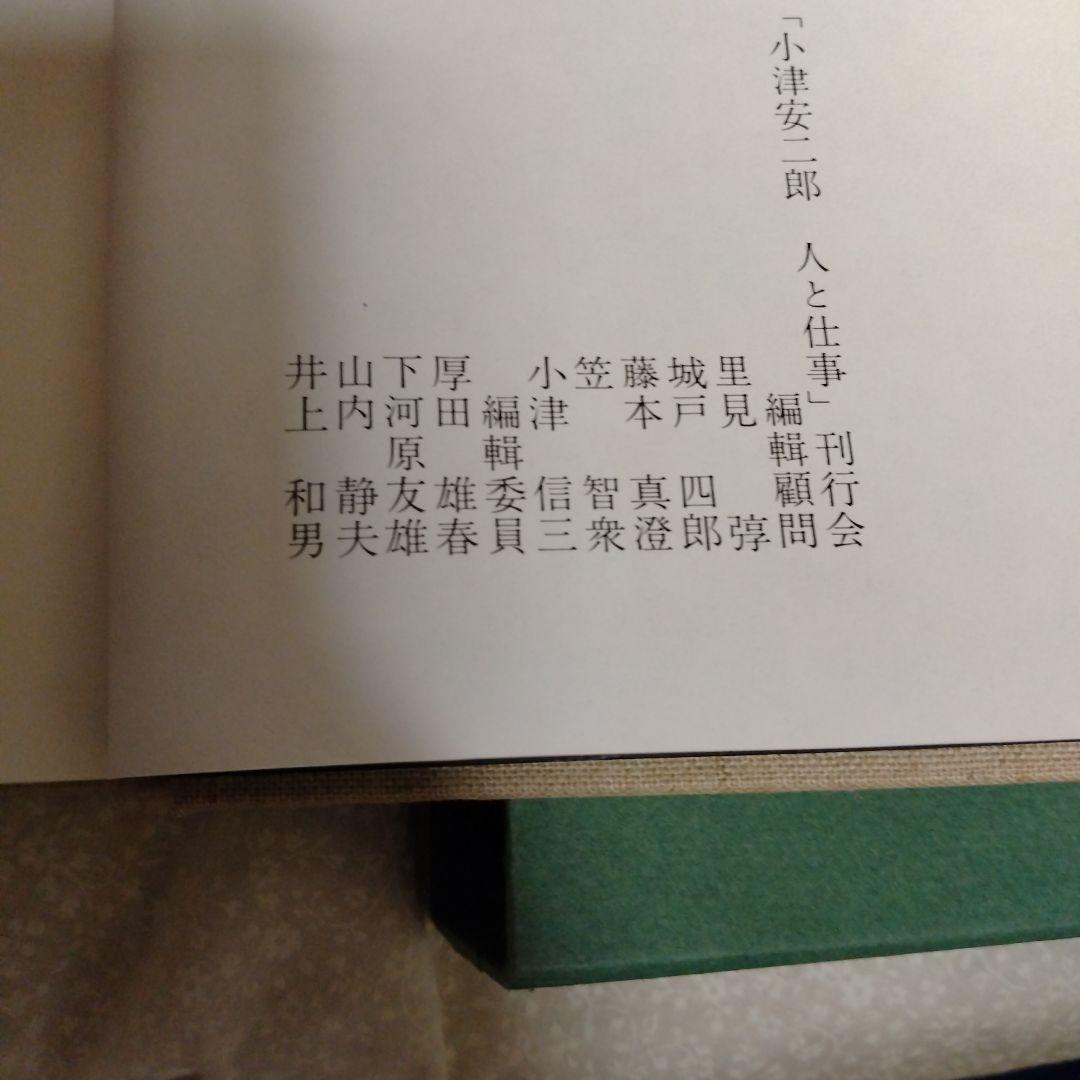 「小津安二郎　人と仕事」刊行会
編輯顧問
里見　弴
城戸四郎
藤本真澄
笠　智衆
小津信三
編輯委員
厚田雄春
下河原友雄
山内静夫
井上和男